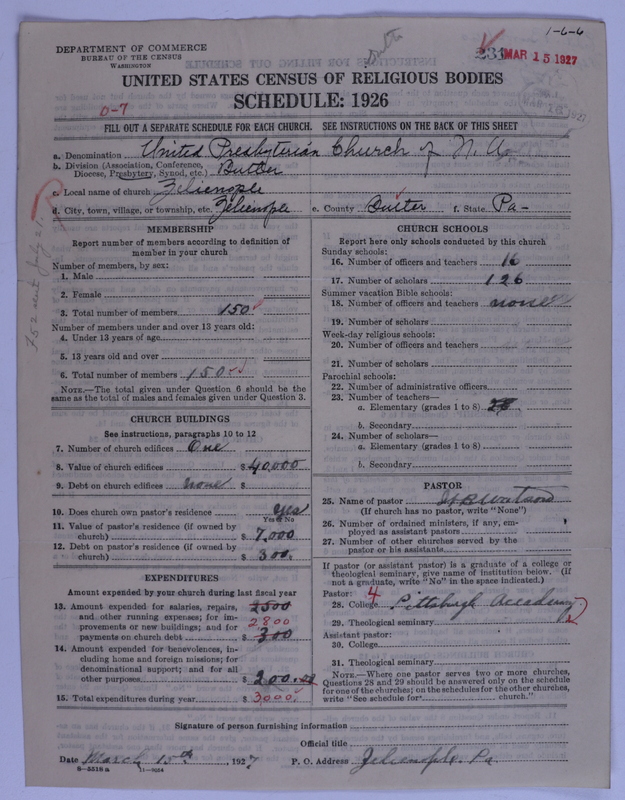 1-6-6
DEPARTMENT OF COMMERCE
BUREAU OF THE CENSUS
WASHINGTON
MAR 15 1927
UNITED STATES CENSUS OF RELIGIOUS BODIES
SCHEDULE: 1926
0-7
FILL OUT A SEPARATE SCHEDULE FOR EACH CHURCH. SEE INSTRUCTIONS ON THE BACK OF THIS SHEET
a. Denomination United Presbyterian Church of N. A.
b. Division (Association, Conference, Diocese, Presbytery, Synod, etc.) Butler
c. Local name of church Zelienople
d. City, town, village, or township, etc. Zelienople e. County Butler f. State Pa-
MEMBERSHIP
Report number of members according to definition of
member in your church
Number of members, by sex:
1. Male
2. Female
3. Total number of members 150
Number of members under and over 13 years old:
4. Under 13 years of age
5. 13 years old and over
6. Total number of members 150
NOTE.—The total given under Question 6 should be the
same as the total of males and females given under Question 3.
CHURCH BUILDINGS
See instructions, paragraphs 10 to 12
7. Number of church edifices One
8. Value of church edifices $40,000
9. Debt on church edifices none $
10. Does church own pastor's residence Yes
Yes or No
11. Value of pastor's residence (if owned by
church) $ 7,000
12. Debt on pastor's residence (if owned by
church) $ 300.
EXPENDITURES
Amount expended by your church during last fiscal year
13. Amount expended for salaries, repairs, 2500
and other running expenses; for im-
provements or new buildings; and for 2800
payments on church debt $ 300
14. Amount expended for benevolences, in-
cluding home and foreign missions; for
denominational support; and for all
other purposes $ 200.
15. Total expenditures during year $ 3000.
CHURCH SCHOOLS
Report here only schools conducted by this church
Sunday schools:
16. Number of officers and teachers 16
17. Number of scholars 126
Summer vacation Bible schools:
18. Number of officers and teachers none
19. Number of scholars
Week-day religious schools:
20. Number of officers and teachers
21. Number of scholars
Parochial schools:
22. Number of administrative officers
23. Number of teachers—
a. Elementary (grades 1 to 8)
b. Secondary
24. Number of scholars—
a. Elementary (grades 1 to 8)
b. Secondary
PASTOR
25. Name of pastor
(If church has no pastor, write "None")
26. Number of ordained ministers, if any, em-
ployed as assistant pastors
27. Number of other churches served by the
pastor or his assistants
If pastor (or assistant pastor) is a graduate of a college or
theological seminary, give name of institution below. (If
not a graduate, write "No" in the space indicated.)
Pastor: 4
28. College Pittsburgh Accademy
29. Theological seminary
Assistant pastor:
30. College
31. Theological seminary
NOTE.—Where one pastor serves two or more churches,
Questions 28 and 29 should be answered only on the schedule
for one of the churches; on the schedules for the other churches,
write "See schedule for church."
Signature of person furnishing information
Official title
Date March 15th, 1927 P. O. Address Zelienople, Pa.
8-5518a 11-9054